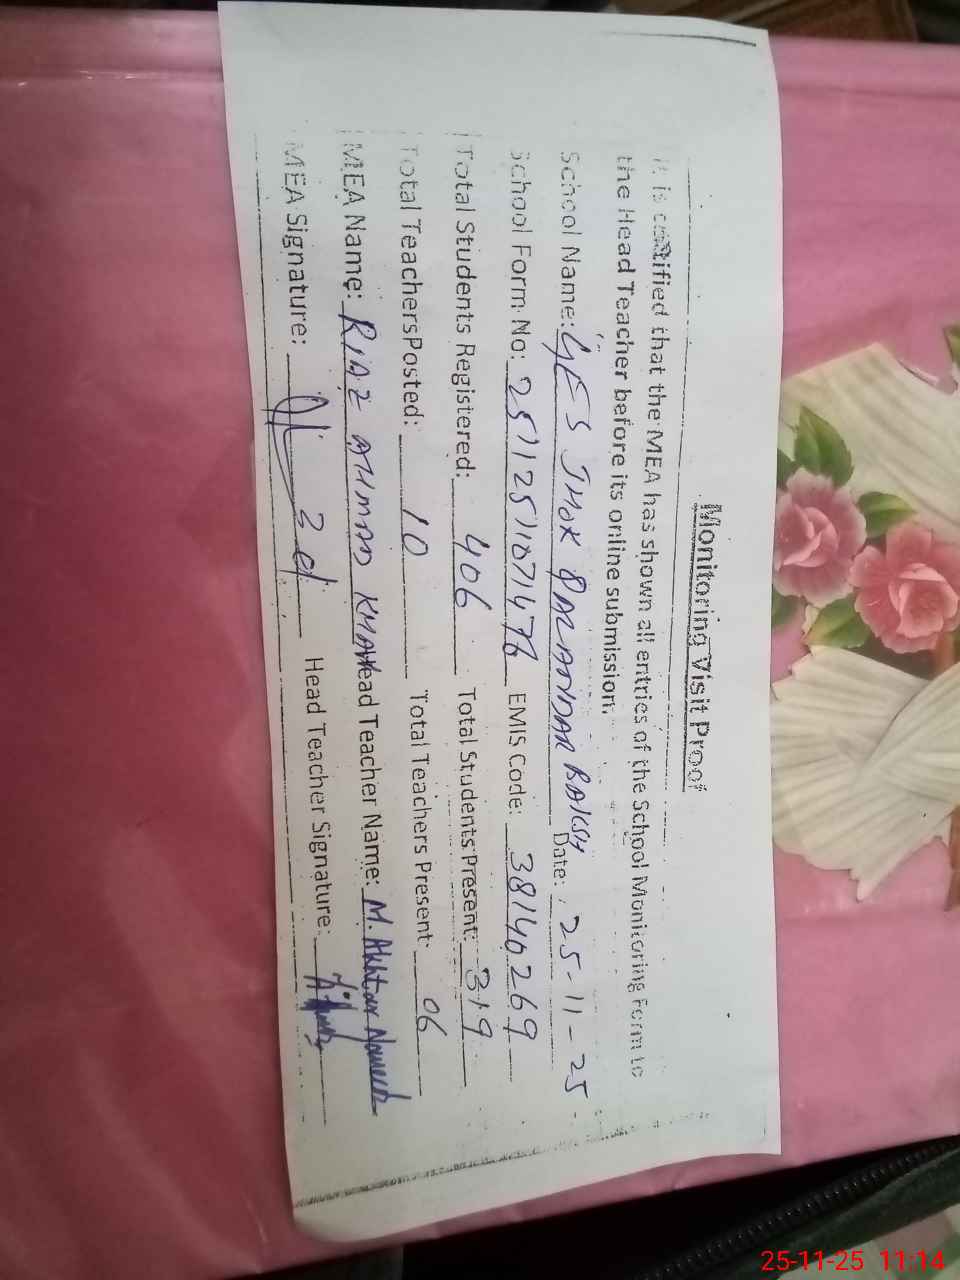 Monitoring Visit Proof
It is certified that the MEA has shown all entries of the School Monitoring Form to
the Head Teacher before its online submission.
School Name: GES JHOK QALANDAR BAKSH Date: 25-11-25
School Form No: EMIS Code: 38140269
Total Students Registered: 406 Total Students Present: 319
Total Teachers Posted: 10 Total Teachers Present: 06
MEA Name: RIAZ AHMAD KHAN Head Teacher Name: M. Akhtar
MEA Signature: Head Teacher Signature:
25-11-25 11:14